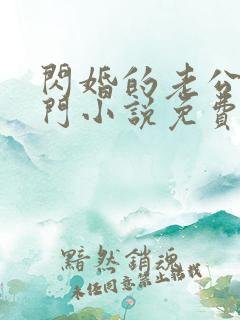 閃婚的老公
門小說免費
黯然銷魂
未經同意禁止轉載